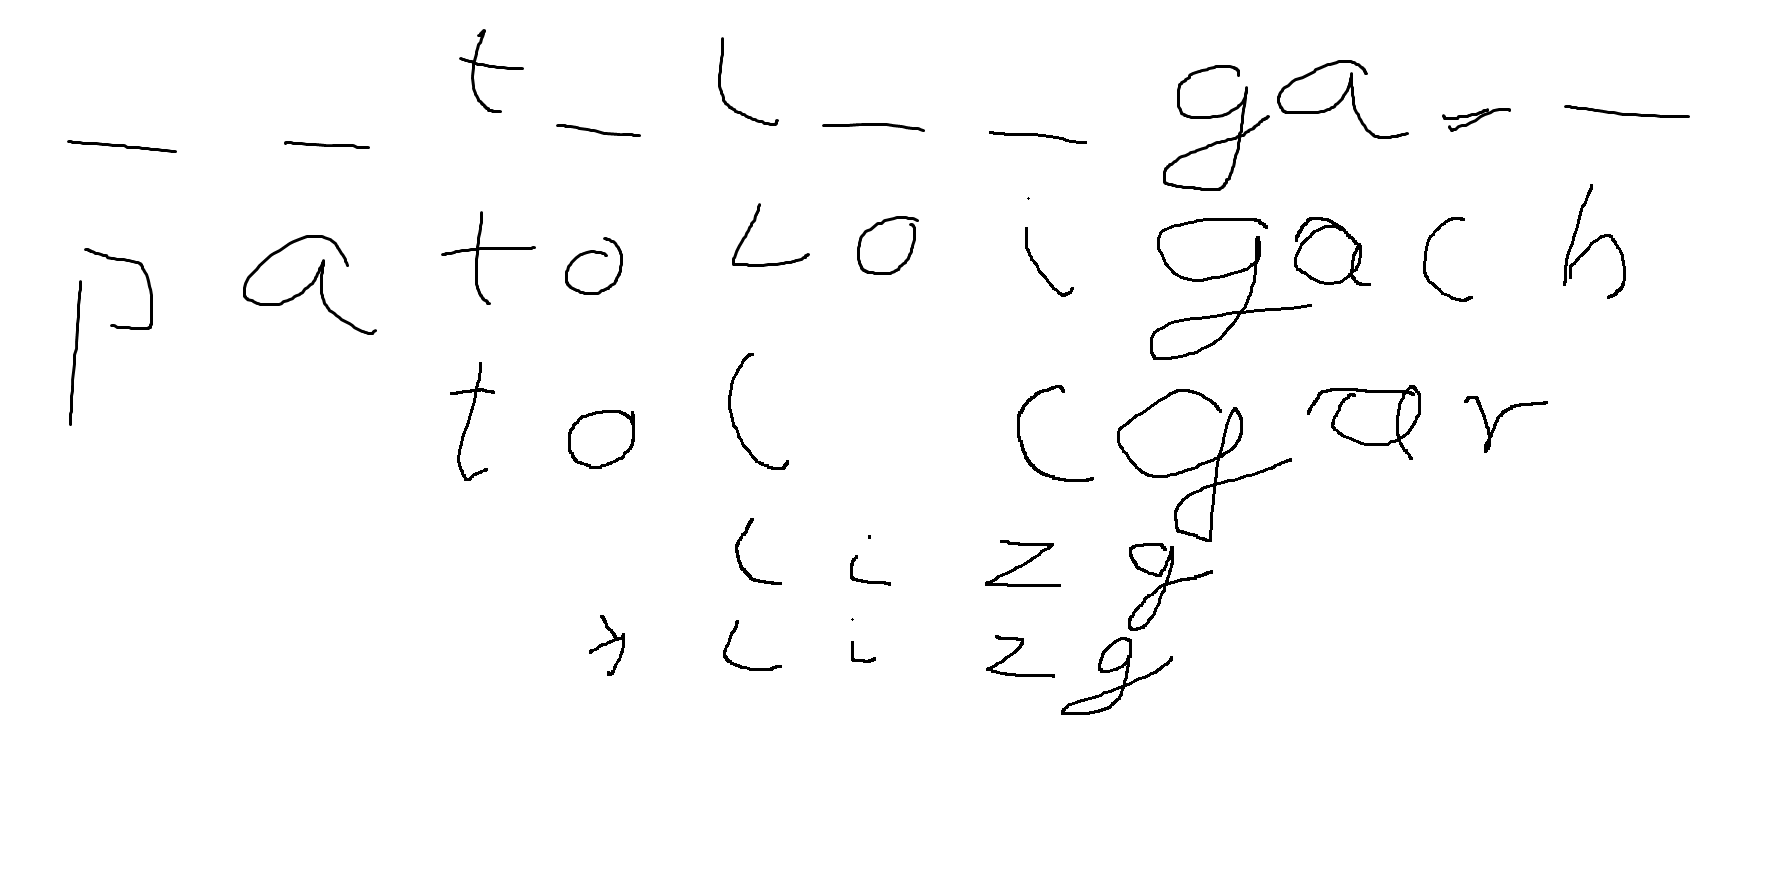 _ _ t _ l _ _ ga _ _
patoloigach
tol cgar
lizg
lizg